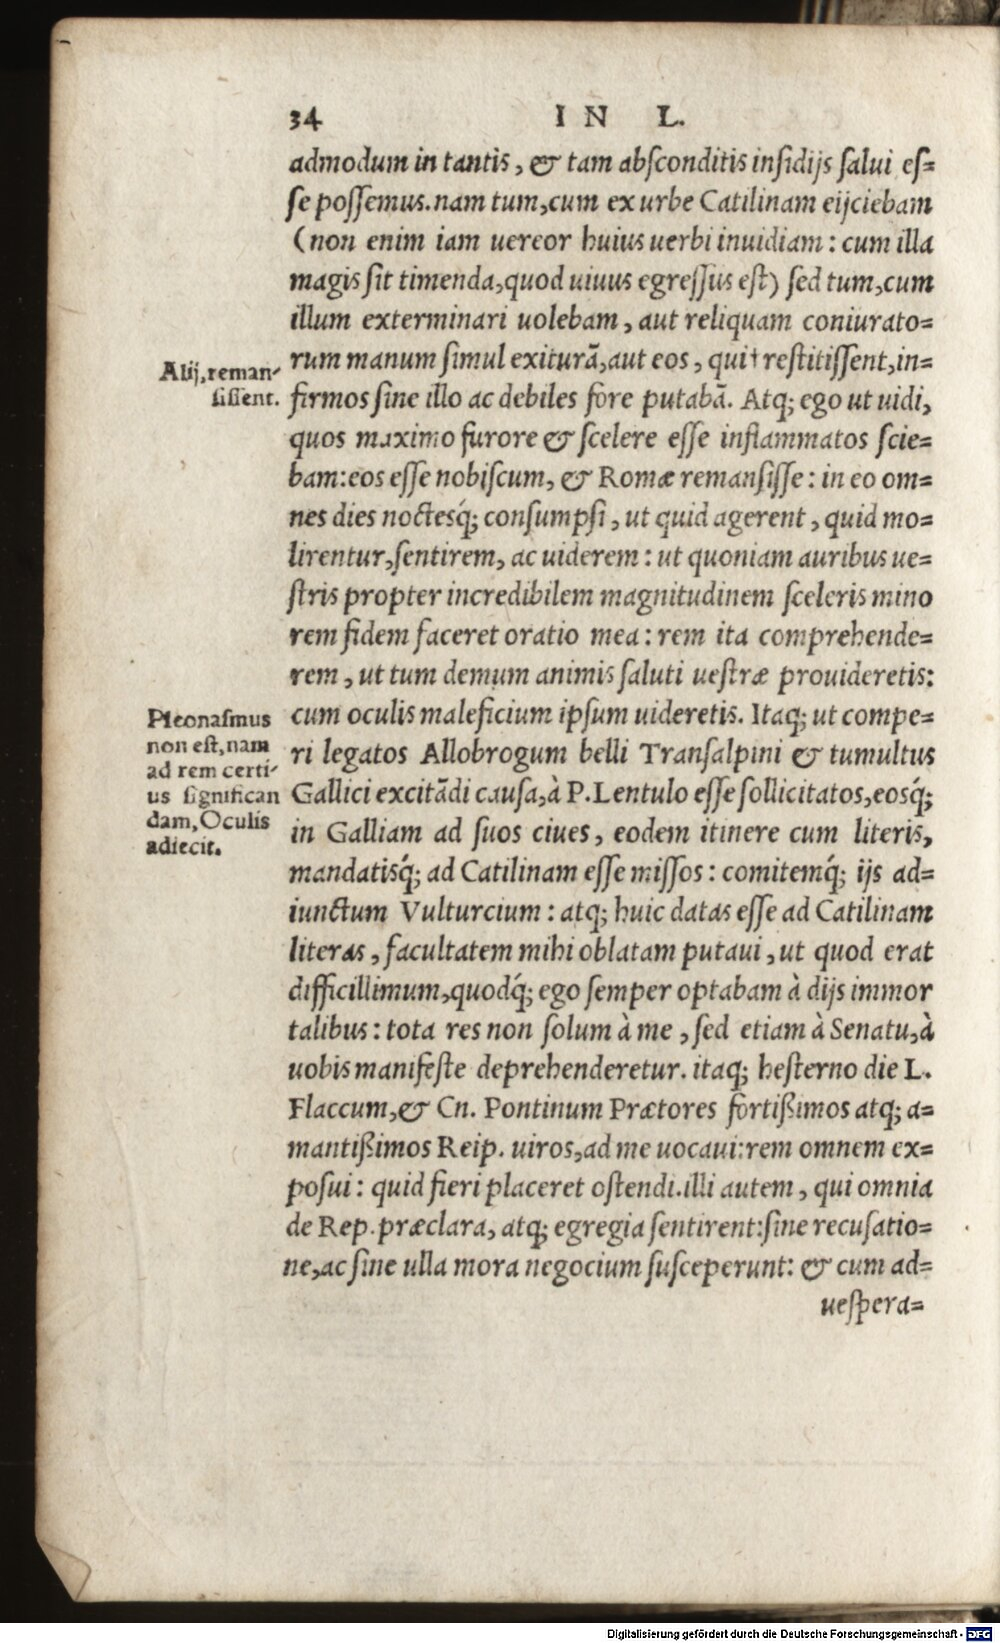 34 IN L.
admodum in tantis, & tam abſconditis inſidijs ſalui eſ=
ſe poſſemus. nam tum, cum ex urbe Catilinam eijciebam
(non enim iam uereor huius uerbi inuidiam: cum illa
magis ſit timenda, quod uiuus egreſſus eſt) ſed tum, cum
illum exterminari uolebam, aut reliquam coniurato=
rum manum ſimul exiturã, aut eos, qui† reſtitiſſent, in=
firmos ſine illo ac debiles fore putabã. Atq; ego ut uidi,
quos maximo furore & ſcelere eſſe inflammatos ſcie=
bam: eos eſſe nobiſcum, & Romæ remanſiſſe: in eo om=
nes dies noctesq́; conſumpſi, ut quid agerent, quid mo=
lirentur, ſentirem, ac uiderem: ut quoniam auribus ue=
ſtris propter incredibilem magnitudinem ſceleris mino
rem fidem faceret oratio mea: rem ita comprehende=
rem, ut tum demum animis ſaluti ueſtræ prouideretis:
cum oculis maleficium ipſum uideretis. Itaq; ut compe=
ri legatos Allobrogum belli Tranſalpini & tumultus
Gallici excitãdi cauſa, à P. Lentulo eſſe ſollicitatos, eosq́;
in Galliam ad ſuos ciues, eodem itinere cum literis,
mandatisq́; ad Catilinam eſſe miſſos: comitemq́; ijs ad=
iunctum Vulturcium: atq; huic datas eſſe ad Catilinam
literas, facultatem mihi oblatam putaui, ut quod erat
difficillimum, quodq́; ego ſemper optabam à dijs immor
talibus: tota res non ſolum à me, ſed etiam à Senatu, à
uobis manifeſte deprehenderetur. itaq; heſterno die L.
Flaccum, & Cn. Pontinum Prætores fortißimos atq; a=
mantißimos Reip. uiros, ad me uocaui: rem omnem ex=
poſui: quid fieri placeret oſtendi. illi autem, qui omnia
de Rep. præclara, atq; egregia ſentirent: ſine recuſatio=
ne, ac ſine ulla mora negocium ſuſceperunt: & cum ad=
ueſpera=
Alij, reman-
ſiſſent.
Pleonaſmus
non eſt, nam
ad rem certi-
us ſignifican
dam, Oculis
adiecit.
Digitalisierung gefördert durch die Deutsche Forschungsgemeinschaft - DFG